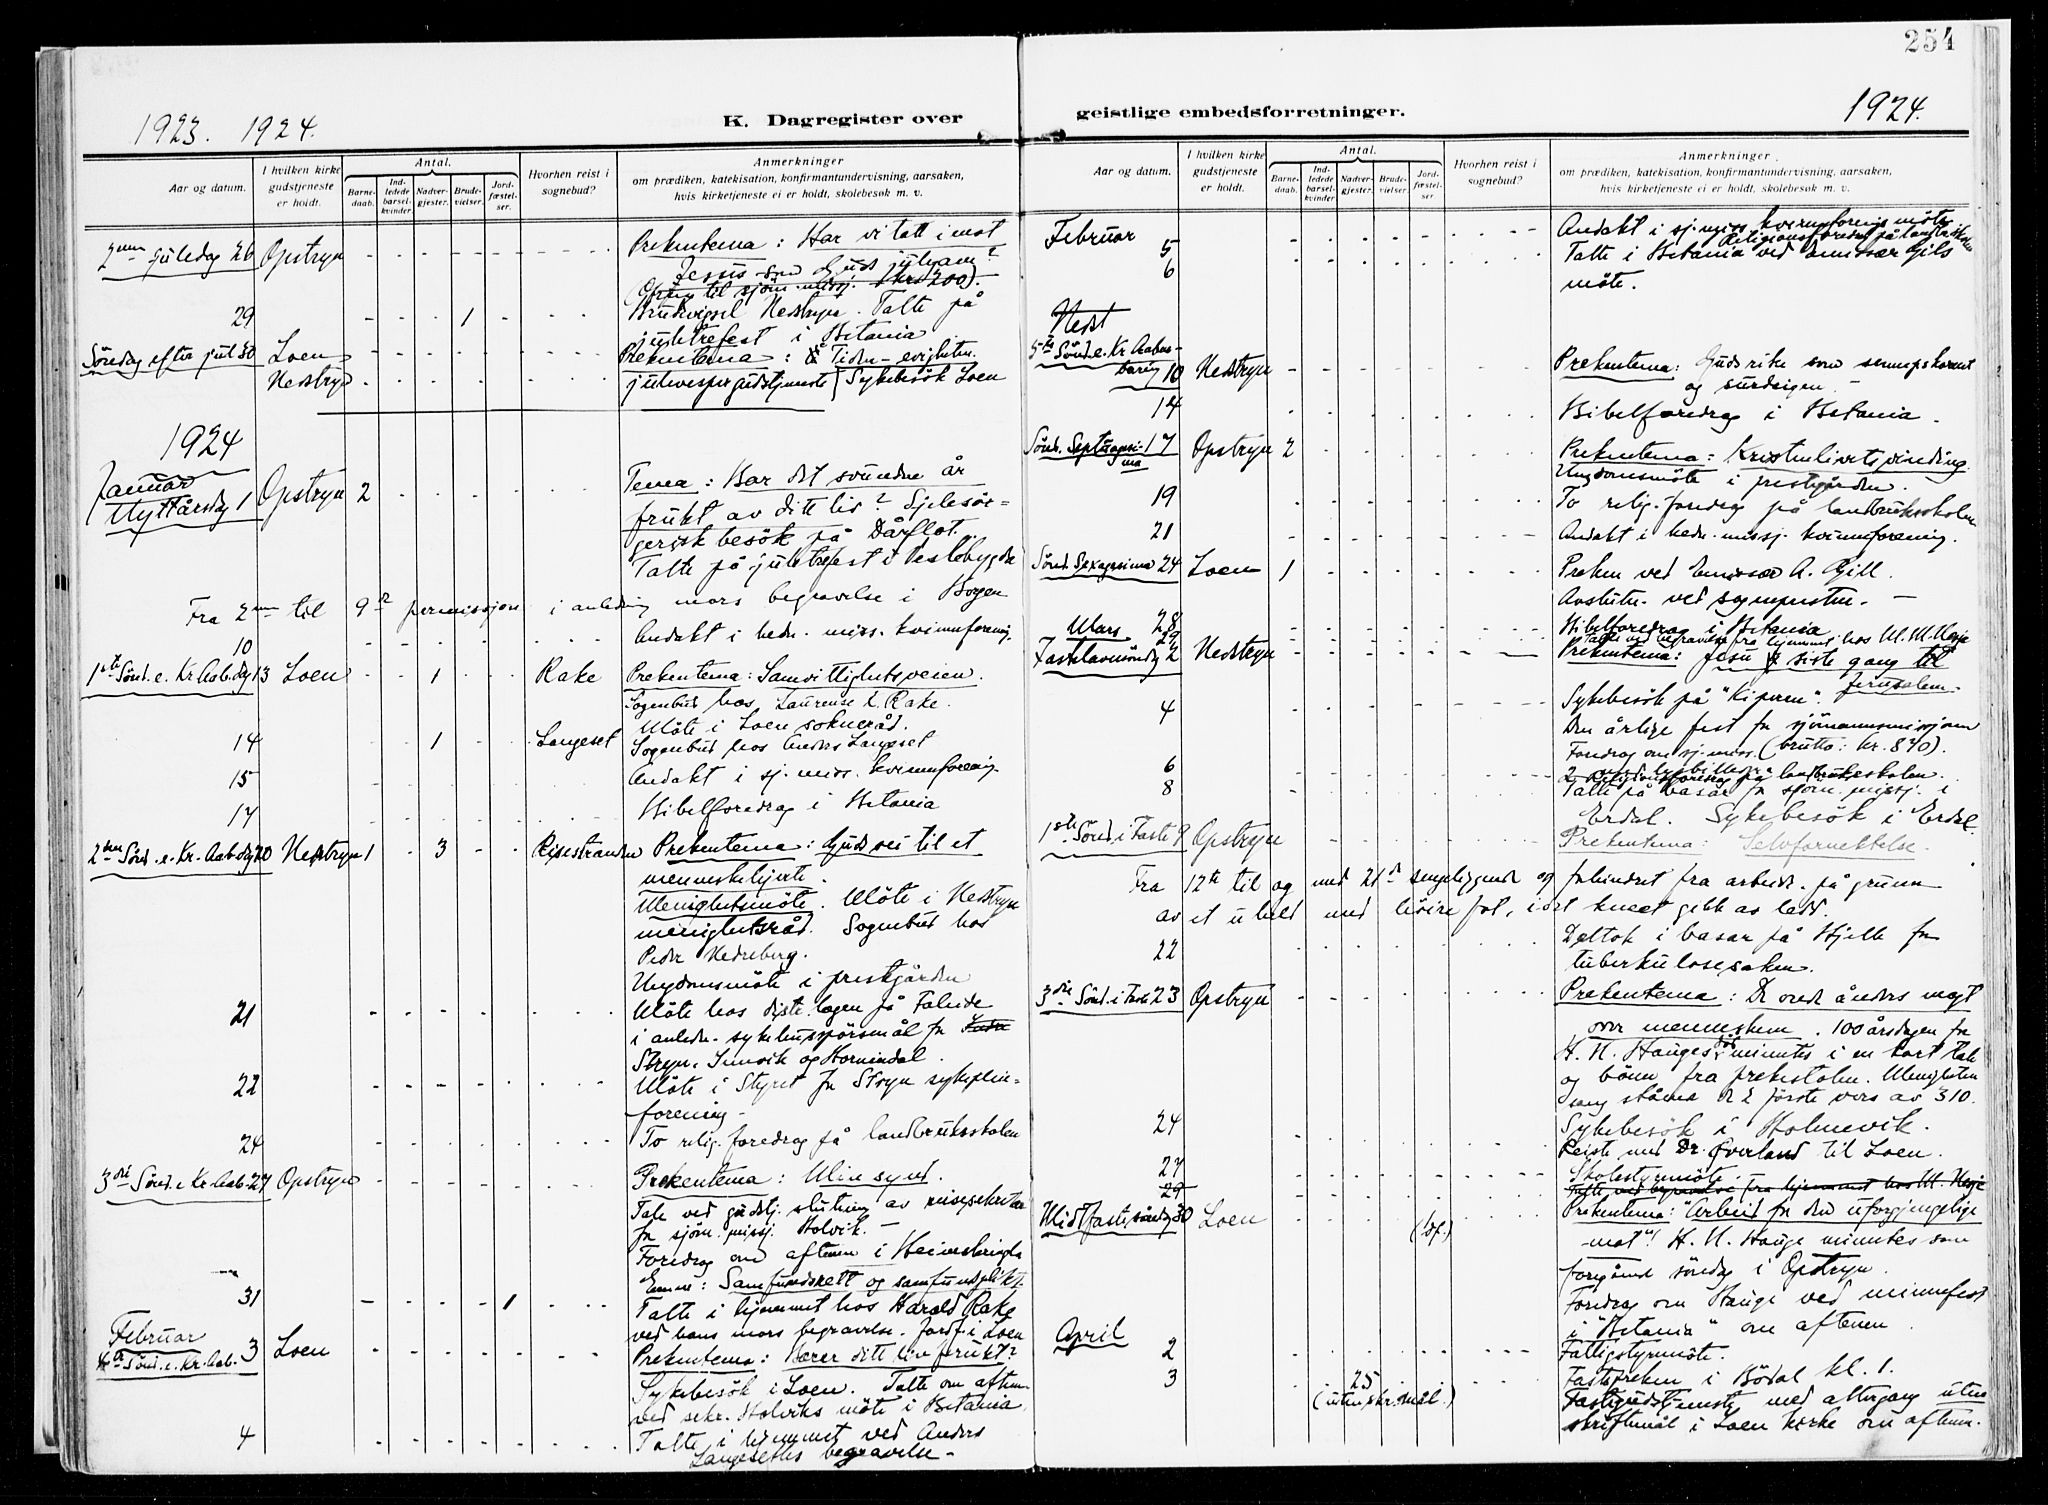 254
1923. 1924.
K. Dagregister over
Aar og datum.
I hvilken kirke gudstjeneste er holdt.
Antal.
Barnedaab.
Indledede barselkvinder.
Nadvergjester.
Brudevielser.
Jordfæstelser.
Hvorhen reist i sognebud?
Anmerkninger
om prædiken, katekisation, konfirmantundervisning, aarsaken,
hvis kirketjeneste ei er holdt, skolebesøk m. v.
2nen juledag 26 Opstryn Prekentema: Har vi tatt imot
Jesus som Guds julegave?
Ofring til sjöm. missj. (kr. 200).
29 1 Brudevigsel Nedstryn. Talte på
juletrefest i Betania
Söndag efter jul 30 Loen Prekentema: Tiden - evigheten.
Nedstryn julevespergudstjeneste Sykebesök Loen
1924
Januar
Nyttårsdag 1 Opstryn 2 Tema: Bar det svundne år
frukt av ditt liv? Sjelesör=
gerisk besök på Dårflot.
Talte på juletrefest i Veslebygda
Fra 2nen til 9de permissjon i anledning mors begravelse i Borgen
10 Andakt i hedn. miss. kvinneforening.
1ste Sönd. e. Kr. Aab.dag 13 Loen 1 Rake Prekentema: Samvittighetsveien.
Sognebud hos Laurense L. Rake.
Möte i Loen sokneråd.
14 1 Langeset Sognebud hos Anders Langeset
15 Andakt i sj. miss. kvinneforening.
17 Bibelforedrag i Betania
2nen Sönd. e. Kr. Aab.dag 20 Nedstryn 1 3 Risestranden Prekentema: Guds vei til et
menneskehjerte.
Menighetsmöte. Möte i Nedstryn
menighetsråd. Sognebud hos
Peder Nedreberg.
Ungdomsmöte i prestgården
21 Möte hos distr. lægen på Faleide
i anledn. sykehusspörsmål for Indre
Stryn, Innvik og Hornindal.
22 Möte i Styret for Stryn sykepleie=
forening -
24 To relig. foredrag på landbruksskolen
3die Sönd. e Kr. Aab. 27 Opstryn Prekentema: Min synd.
Tale ved gudstj. slutning av reisesekretær
for sjöm. missj. Holvik. -
Foredrag om aftenen i Heimskringla
Emne: Samfundsrett og samfundsplikt.
31 1 Talte i hjemmet hos Harald Rake
ved hans mors begravelse. Jordf. i Loen
Februar
4de Sönd. e. Kr. Aab. 3 Loen Prekentema: Bærer ditt liv frukt?
Sykebesök i Loen. Talte om aften
ved sekr. Holviks möte i Betania
4 Talte i hjemmet ved Anders
Langesettes begravelse -
geistlige embedsforretninger.
1924.
Aar og datum.
I hvilken kirke gudstjeneste er holdt.
Antal.
Barnedaab.
Indledede barselkvinder
Nadvergjester.
Brudevielser.
Jordfæstelser
Hvorhen reist i sognebud?
Anmerkninger
om prædiken, katekisation, konfirmantundervisning, aarsaken,
hvis kirketjeneste ei er holdt, skolebesøk m. v.
Februar
5 Andakt i sj. miss. kvinneforenings möte
Religionsforedrag på landbr.skolen
6 Talte i Betania ved emissær Gils
möte.
Nedst
5te Sönd. e. Kr Aaben-
baring 10 Nedstryn Prekentema: Guds rike som sennepskornet
og surdeigen -
14 Bibelforedrag i Betania.
Sönd. Septuagesi-
ma 17 Opstryn 2 Prekentema: Kristenlivets vinding.
Ungdomsmöte i prestgården.
19 To relig. foredrag på landbruksskolen
21 Andakt i hedn. missj. kvinneforening.
Sönd. Sexagesima 24 Loen 1 Preken ved Emissær A. Gill.
Avslutn. ved sognepresten. -
28 Bibelforedrag i Betania
Mars 29 Talte ved begravelse fra hjemmet hos M. M. Nesje
Fastelavnsöndag 2 Nedstryn Prekentema: Jesu siste gang til
Jerusalem.
Sykebesök på "Kiperen".
4 Den årlige fest for sjömannsmissjonen
Foredrag om sj. miss. (brutto: kr. 840).
med lysbilleder
6 2 Religionsforedrag på landbruksskolen.
8 Talte på basar for sjöm. missj. i
Erdal. Sykebesök i Erdal.
1ste Sönd. i Faste 9 Opstryn Prekentema: Selvfornektelse.
Fra 12te til og med 21de sengeliggende og forhindret fra arbeide på grunn
av et uheld med höire fot, idet kneet gikk av ledd.
22 Deltok i basar på Hjelle for
tuberkulosesaken.
3die Sönd. i Faste 23 Opstryn Prekentema: De onde ånders magt
over mennesken. 100 årsdagen for
H. N. Hauges död mintes i en kort tale
og bönn fra prekestolen. Menigheten
sang stående de 2 förste vers av 310.
24 Sykebesök i Holmevik.
Reiste med Dr. Överland til Loen.
27 Skolestyremöte.
29 Talte ved begravelse fra hjemmet hos M. Nesje
Midtfastesöndag 30 Loen Prekentema: "Arbeid for den uforgjengelige
mat"! H. N. Hauge mintes som
foregående söndag i Opstryn.
Foredrag om Hauge ved minnefest
i "Betania" om aftenen.
April
2 Fattigstyremöte.
3 25 Fastepreken i Bödal kl. 1.
(uten skr.mål.) Fastegudstjeneste med altergang uten
skriftemål i Loen kirke om aftenen.